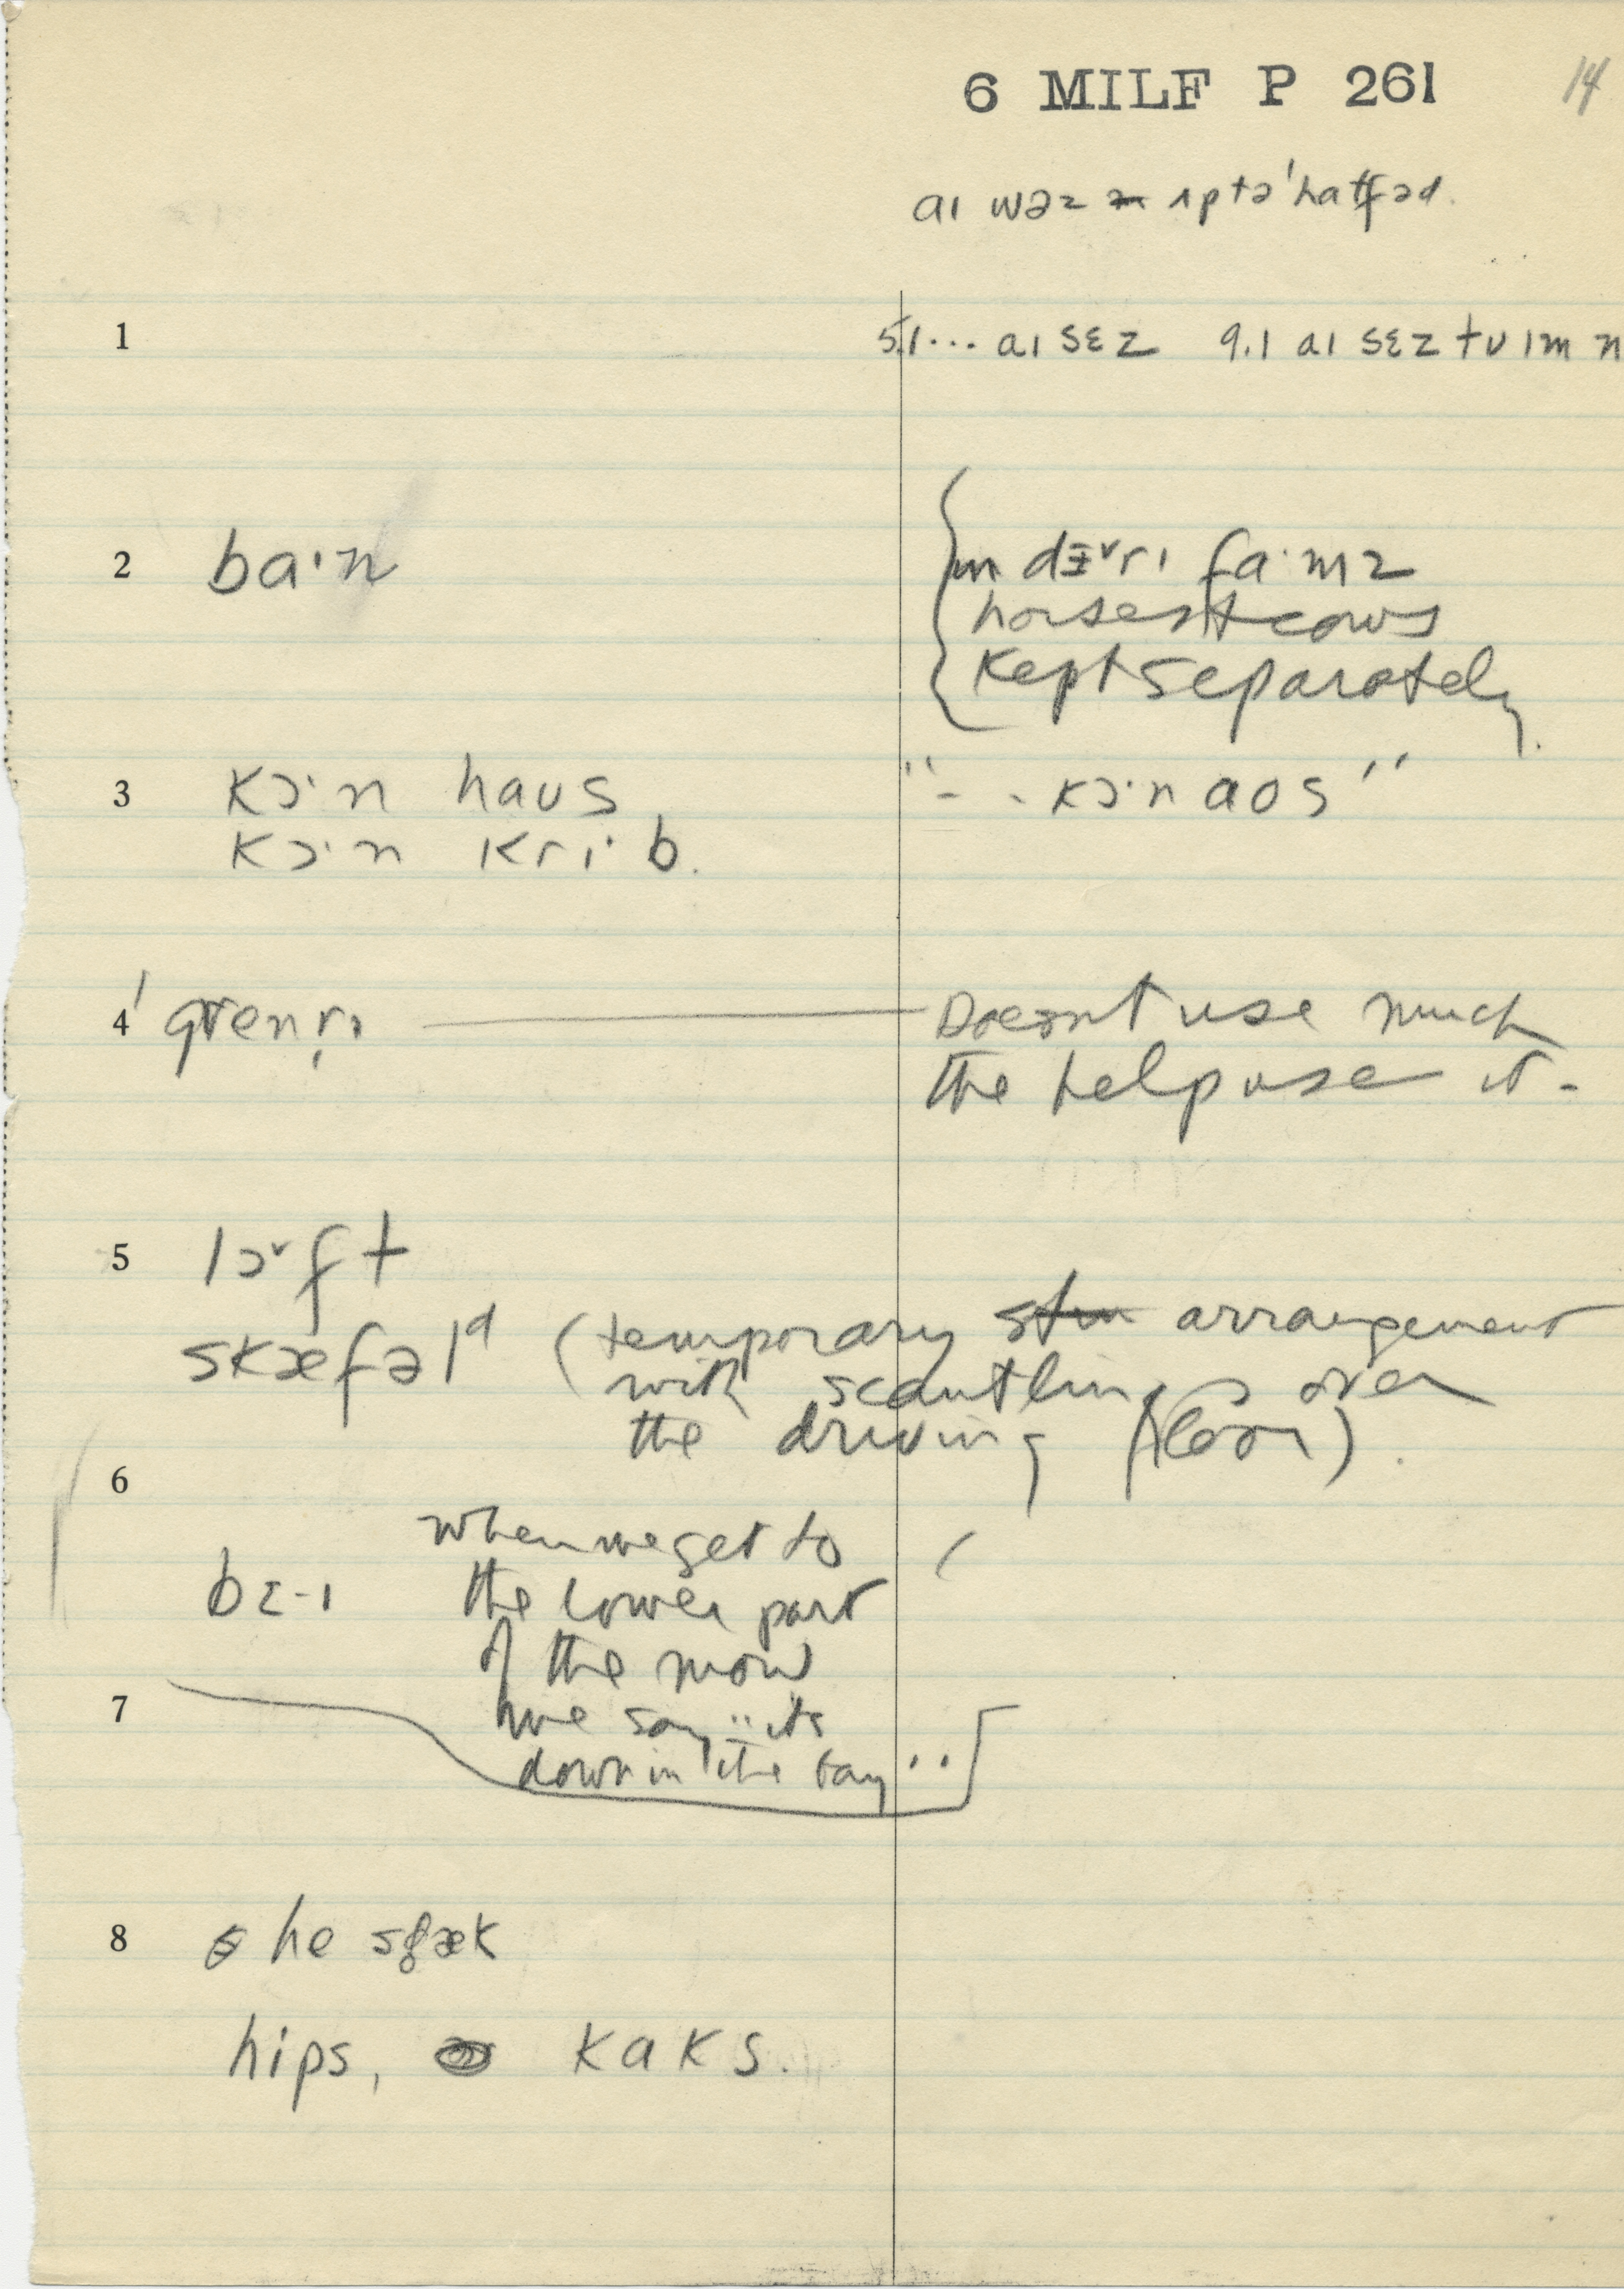 6 MILF P 261 14
aɪ wəz ʌp tə ˈhatʃəd.
1 5.1... aɪ sɛz 9.1 aɪ sɛz tʊ ɪm n
2 ba·n
ɪn dɛ˅rɪ fa·mz
horses + cows
kept separately.
3 kɔ·n haʊs "- - kɔ·n aos"
kɔ·n krɪ·b.
4 Doesn't use much
the help use it -
5 lɔ˅ft
skæfəlᵈ (temporary arrangement
with scantlings over
the driving floor).
6
when we get to
the lower part
of the mow
7 we say "its
down in the bay"
8 he
hips, kaks.